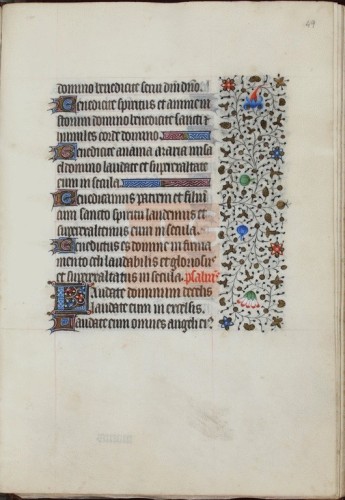 49
domino benedicite serui dñi dño.
Benedicite spiritus et anime iu
storum domino benedicite sancti et
humiles corde domino.
Benedicite anania azaria misa
el domino laudate et superexaltate
eum in secula.
Benedicamus patrem et filium
cum sancto spiritu laudemus et
superexaltemus eum in secula.
Benedictus es domine in firma
mento celi laudabilis et gloriosus
et superexaltatus in secula. psalmus
Laudate dominum de celis
laudate eum in excelsis.
Laudate eum omnes angeli ei